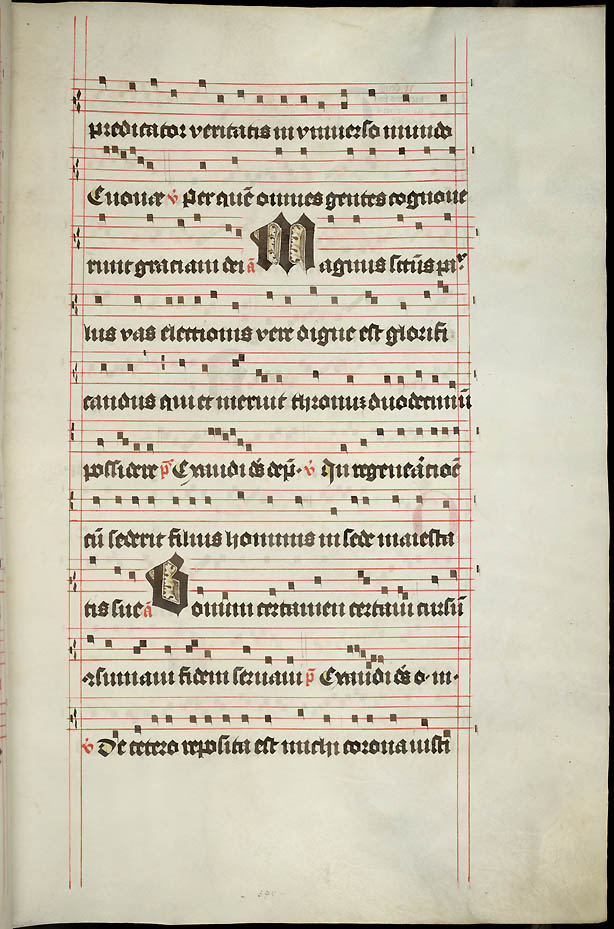 predicator veritatis in vniuerso mundo
Euouae v̇ Per quē omnes gentes cognoue
runt graciam dei a̅ Magnus sctūs pa⁹
lus vas electionis vere digne est glorifi
candus qui et meruit thronuȝ duodecimū
possidere p̄s Exaudi d̄s dep̄. v̇ In regeneracione
cū sederit filius hominis in sede maiesta
tis sue a̅ Bonum certamen certaui cursū
ꝯsumaui fidem seruaui p̄s Exaudi d̄s o. m.
v̇ De cetero reposita est michi corona iusti